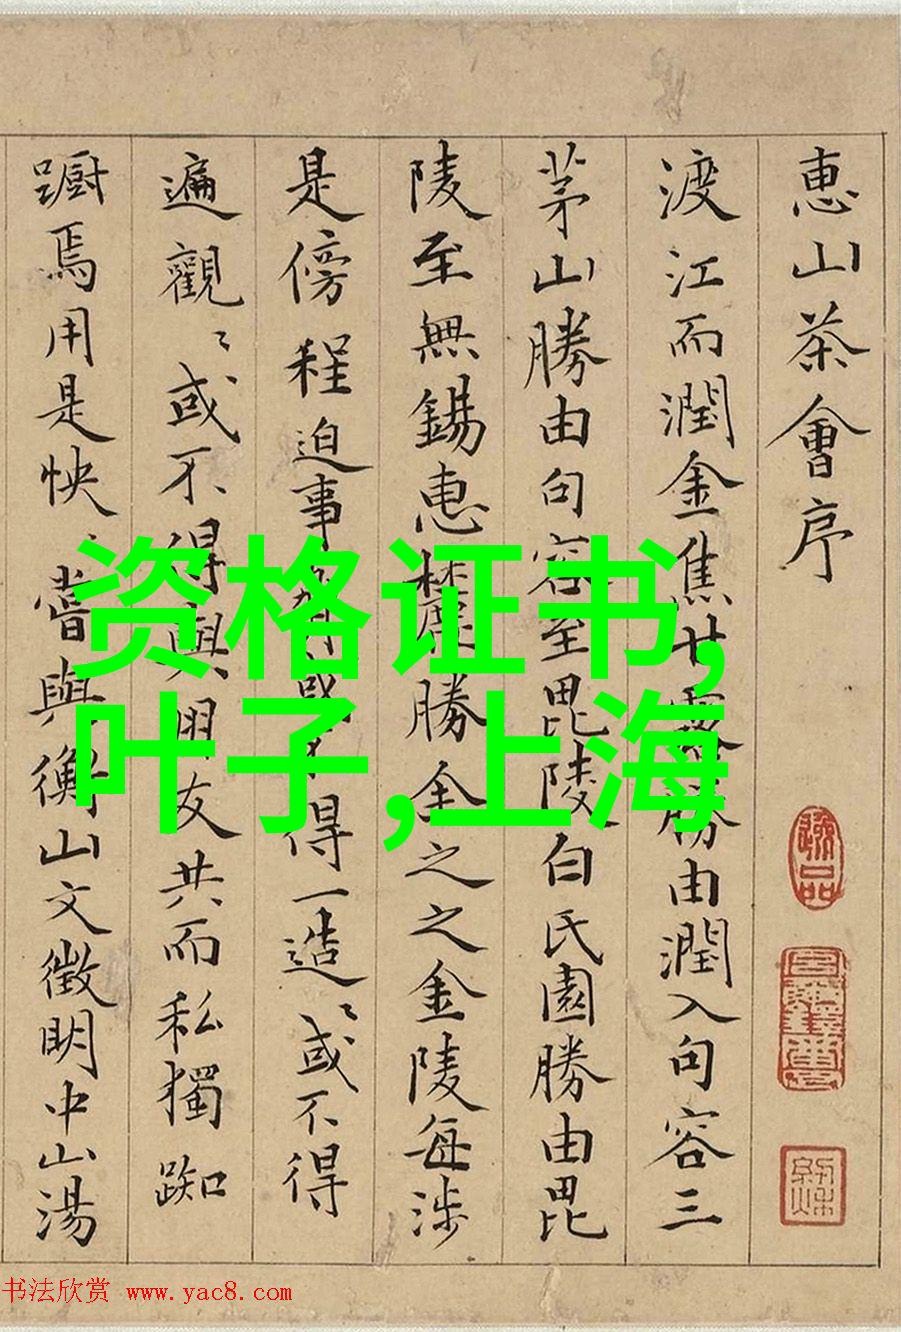 惠山茶會序
渡江而潤金焦廿露勝由潤入句容三
茅山勝由句容至毘陵白氏園勝由毘
陵至無錫惠麓勝全之之金陵每涉
是傍程迫事得一造〻或不得
遍觀〻或不得與朋友共而私獨踟
蹰焉用是怏〻嘗與衡山文徵明中山湯
資格证书,
叶子,上海
书法欣赏 www.yac8.com